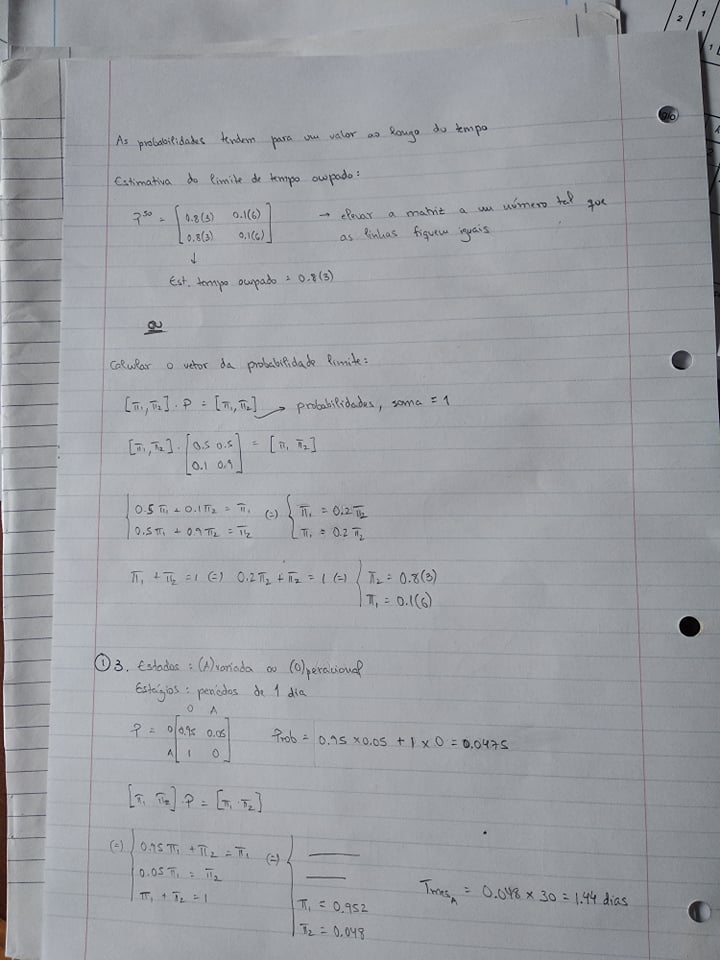 As probabilidades tendem para um valor ao longo do tempo
Estimativa do limite de tempo ocupado:
P⁵⁰ = [0.8(3) 0.1(6)] → elevar a matriz a um número tal que
[0.8(3) 0.1(6)] as linhas fiquem iguais
↓
Est. tempo ocupado = 0.8(3)
ou
Calcular o vetor da probabilidade limite:
[π₁, π₂] . P = [π₁, π₂] → probabilidades, soma = 1
[π₁, π₂] . [0.5 0.5] = [π₁ π₂]
[0.1 0.9]
{ 0.5π₁ + 0.1π₂ = π₁ (=) { π₁ = 0.2π₂
0.5π₁ + 0.9π₂ = π₂ π₁ = 0.2π₂
π₁ + π₂ = 1 (=) 0.2π₂ + π₂ = 1 (=) { π₂ = 0.8(3)
π₁ = 0.1(6)
① 3. Estados: (A)variada ou (O)peracional
Estágios: períodos de 1 dia
O A
P = O [0.95 0.05] Prob = 0.95 × 0.05 + 1 × 0 = 0.0475
A [1 0]
[π₁ π₂] . P = [π₁ π₂]
(=) { 0.95π₁ + π₂ = π₁ (=) { ——
0.05π₁ = π₂ ——
π₁ + π₂ = 1 π₁ = 0.952
π₂ = 0.048
Tmes_A = 0.048 × 30 = 1.44 dias